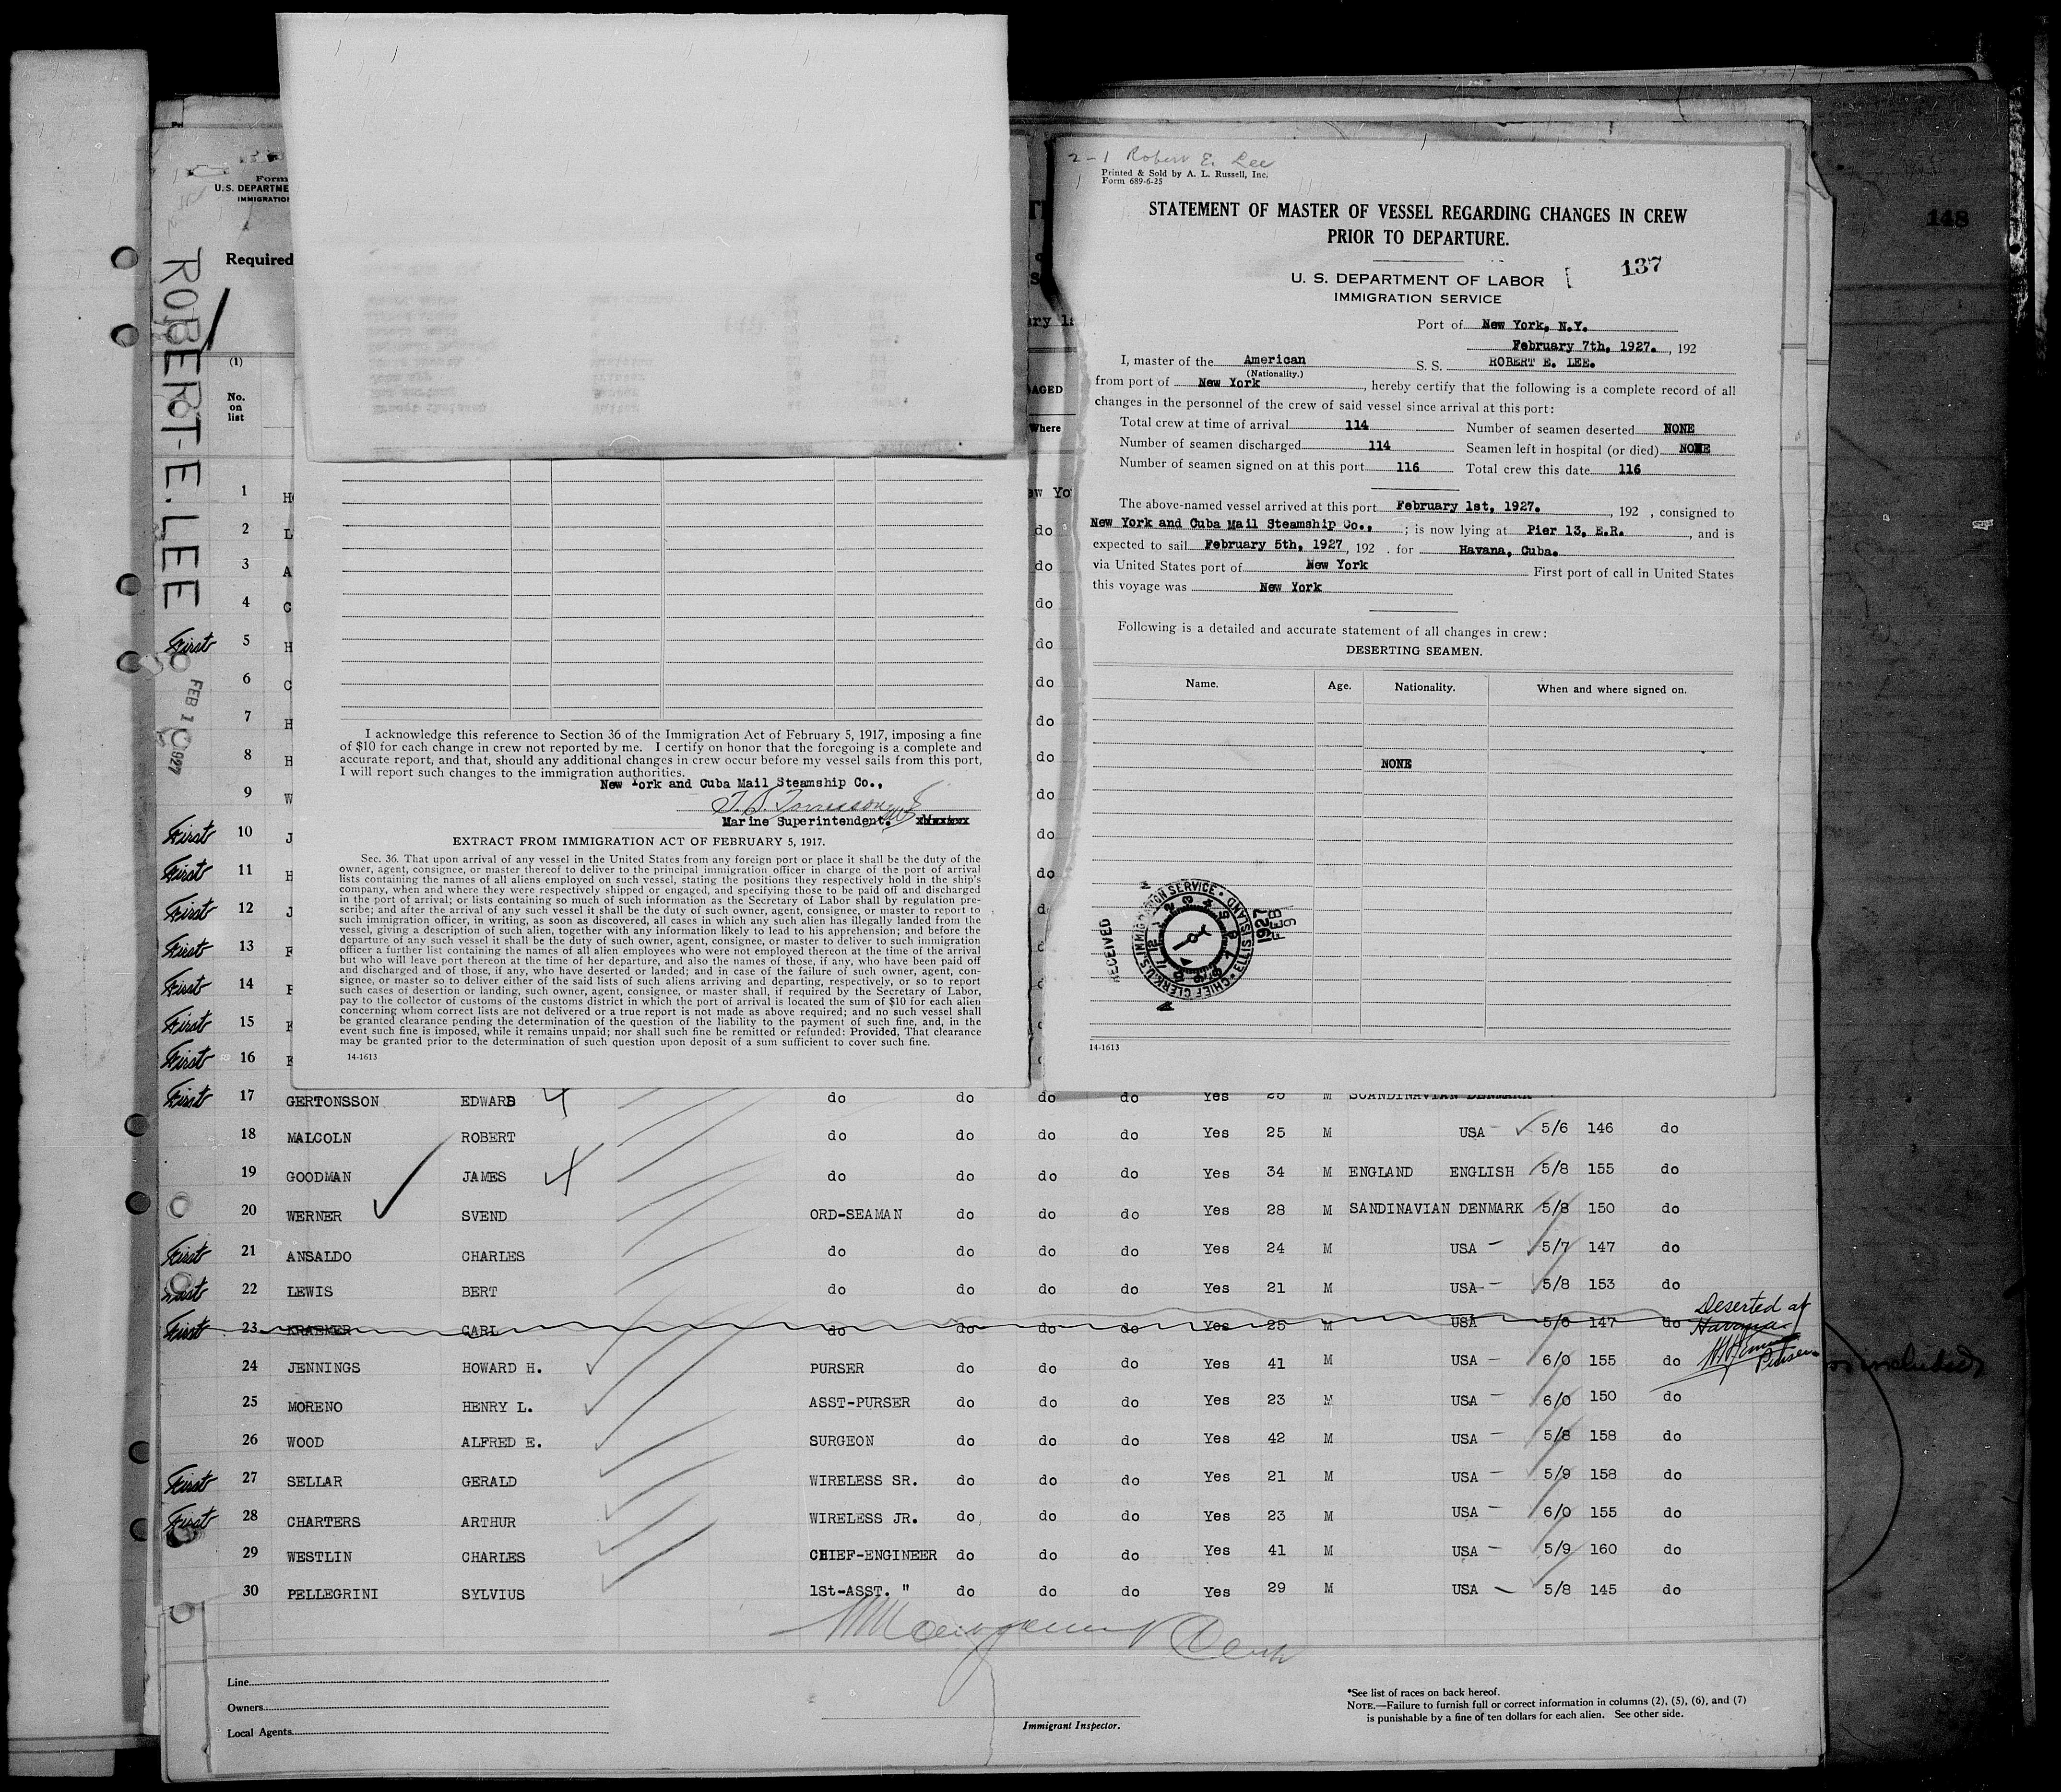 148
2-1 Robert E. Lee
Printed & Sold by A. L. Russell, Inc.
Form 689-6-25
STATEMENT OF MASTER OF VESSEL REGARDING CHANGES IN CREW
PRIOR TO DEPARTURE.
U. S. DEPARTMENT OF LABOR
137
IMMIGRATION SERVICE
Port of New York, N.Y.
February 7th, 1927. , 192
I, master of the American S. S. ROBERT E. LEE.
(Nationality.)
from port of New York , hereby certify that the following is a complete record of all
changes in the personnel of the crew of said vessel since arrival at this port:
Total crew at time of arrival 114 Number of seamen deserted NONE
Number of seamen discharged 114 Seamen left in hospital (or died) NONE
Number of seamen signed on at this port 116 Total crew this date 116
The above-named vessel arrived at this port February 1st, 1927. , 192 , consigned to
New York and Cuba Mail Steamship Co., ; is now lying at Pier 13, E.R. , and is
expected to sail February 5th, 1927 , 192 . for Havana, Cuba.
via United States port of New York First port of call in United States
this voyage was New York
Following is a detailed and accurate statement of all changes in crew:
DESERTING SEAMEN.
Name. Age. Nationality. When and where signed on.
NONE
RECEIVED
U.S. IMMIGRATION SERVICE • ELLIS ISLAND • CHIEF CLERK
1927
FEB
9
14-1613
I acknowledge this reference to Section 36 of the Immigration Act of February 5, 1917, imposing a fine
of $10 for each change in crew not reported by me. I certify on honor that the foregoing is a complete and
accurate report, and that, should any additional changes in crew occur before my vessel sails from this port,
I will report such changes to the immigration authorities.
New York and Cuba Mail Steamship Co.,
Marine Superintendent.
EXTRACT FROM IMMIGRATION ACT OF FEBRUARY 5, 1917.
Sec. 36. That upon arrival of any vessel in the United States from any foreign port or place it shall be the duty of the
owner, agent, consignee, or master thereof to deliver to the principal immigration officer in charge of the port of arrival
lists containing the names of all aliens employed on such vessel, stating the positions they respectively hold in the ship's
company, when and where they were respectively shipped or engaged, and specifying those to be paid off and discharged
in the port of arrival; or lists containing so much of such information as the Secretary of Labor shall by regulation pre-
scribe; and after the arrival of any such vessel it shall be the duty of such owner, agent, consignee, or master to report to
such immigration officer, in writing, as soon as discovered, all cases in which any such alien has illegally landed from the
vessel, giving a description of such alien, together with any information likely to lead to his apprehension; and before the
departure of any such vessel it shall be the duty of such owner, agent, consignee, or master to deliver to such immigration
officer a further list containing the names of all alien employees who were not employed thereon at the time of the arrival
but who will leave port thereon at the time of her departure, and also the names of those, if any, who have been paid off
and discharged and of those, if any, who have deserted or landed; and in case of the failure of such owner, agent, con-
signee, or master so to deliver either of the said lists of such aliens arriving and departing, respectively, or so to report
such cases of desertion or landing, such owner, agent, consignee, or master shall, if required by the Secretary of Labor,
pay to the collector of customs of the customs district in which the port of arrival is located the sum of $10 for each alien
concerning whom correct lists are not delivered or a true report is not made as above required; and no such vessel shall
be granted clearance pending the determination of the question of the liability to the payment of such fine, and, in the
event such fine is imposed, while it remains unpaid; nor shall such fine be remitted or refunded: Provided, That clearance
may be granted prior to the determination of such question upon deposit of a sum sufficient to cover such fine.
14-1613
Form
U.S. DEPARTME
IMMIGRATIO
Required
ROBERT-E. LEE
FEB 10 1927
(1)
No.
on
list
AGED
Where
1 H ew Yo
2 L do
3 A do
4 C do
First 5 H do
6 C do
7 H do
8 H do
9 W do
First 10 J do
First 11 H do
First 12 J d
First 13 F
First 14 F
First 15
First 16
First 17 GERTONSSON EDWARD do do do do Yes 25 M SCANDINAVIAN DENMARK
18 MALCOLN ROBERT do do do do Yes 25 M USA 5/6 146 do
19 GOODMAN JAMES do do do do Yes 34 M ENGLAND ENGLISH 5/8 155 do
20 WERNER SVEND ORD-SEAMAN do do do Yes 28 M SANDINAVIAN DENMARK 5/8 150 do
First 21 ANSALDO CHARLES do do do do Yes 24 M USA 5/7 147 do
First 22 LEWIS BERT do do do do Yes 21 M USA 5/8 153 do
First 23 KRAEMER CARL do do do do Yes 25 M USA 5/6 147 do Deserted at Havana. Purser
24 JENNINGS HOWARD H. PURSER do do do Yes 41 M USA 6/0 155 do
25 MORENO HENRY L. ASST-PURSER do do do Yes 23 M USA 6/0 150 do
26 WOOD ALFRED E. SURGEON do do do Yes 42 M USA 5/8 158 do
First 27 SELLAR GERALD WIRELESS SR. do do do Yes 21 M USA 5/9 158 do
First 28 CHARTERS ARTHUR WIRELESS JR. do do do Yes 23 M USA 6/0 155 do
29 WESTLIN CHARLES CHIEF-ENGINEER do do do Yes 41 M USA 5/9 160 do
30 PELLEGRINI SYLVIUS 1St-ASST. " do do do Yes 29 M USA 5/8 145 do
included
Line
Owners
Local Agents
Immigrant Inspector.
*See list of races on back hereof.
NOTE.—Failure to furnish full or correct information in columns (2), (5), (6), and (7)
is punishable by a fine of ten dollars for each alien. See other side.